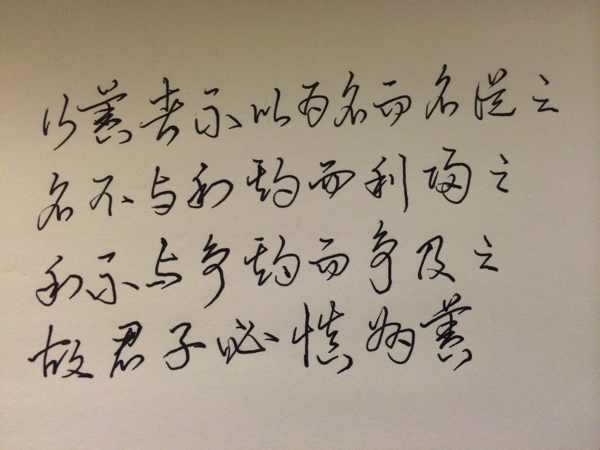 行善者不以为名而名从之
名不与利期而利归之
利不与争期而争及之
故君子必慎为善